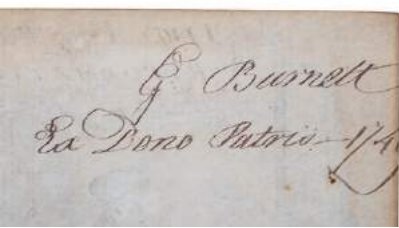 G Burnett
Ex Dono Patris